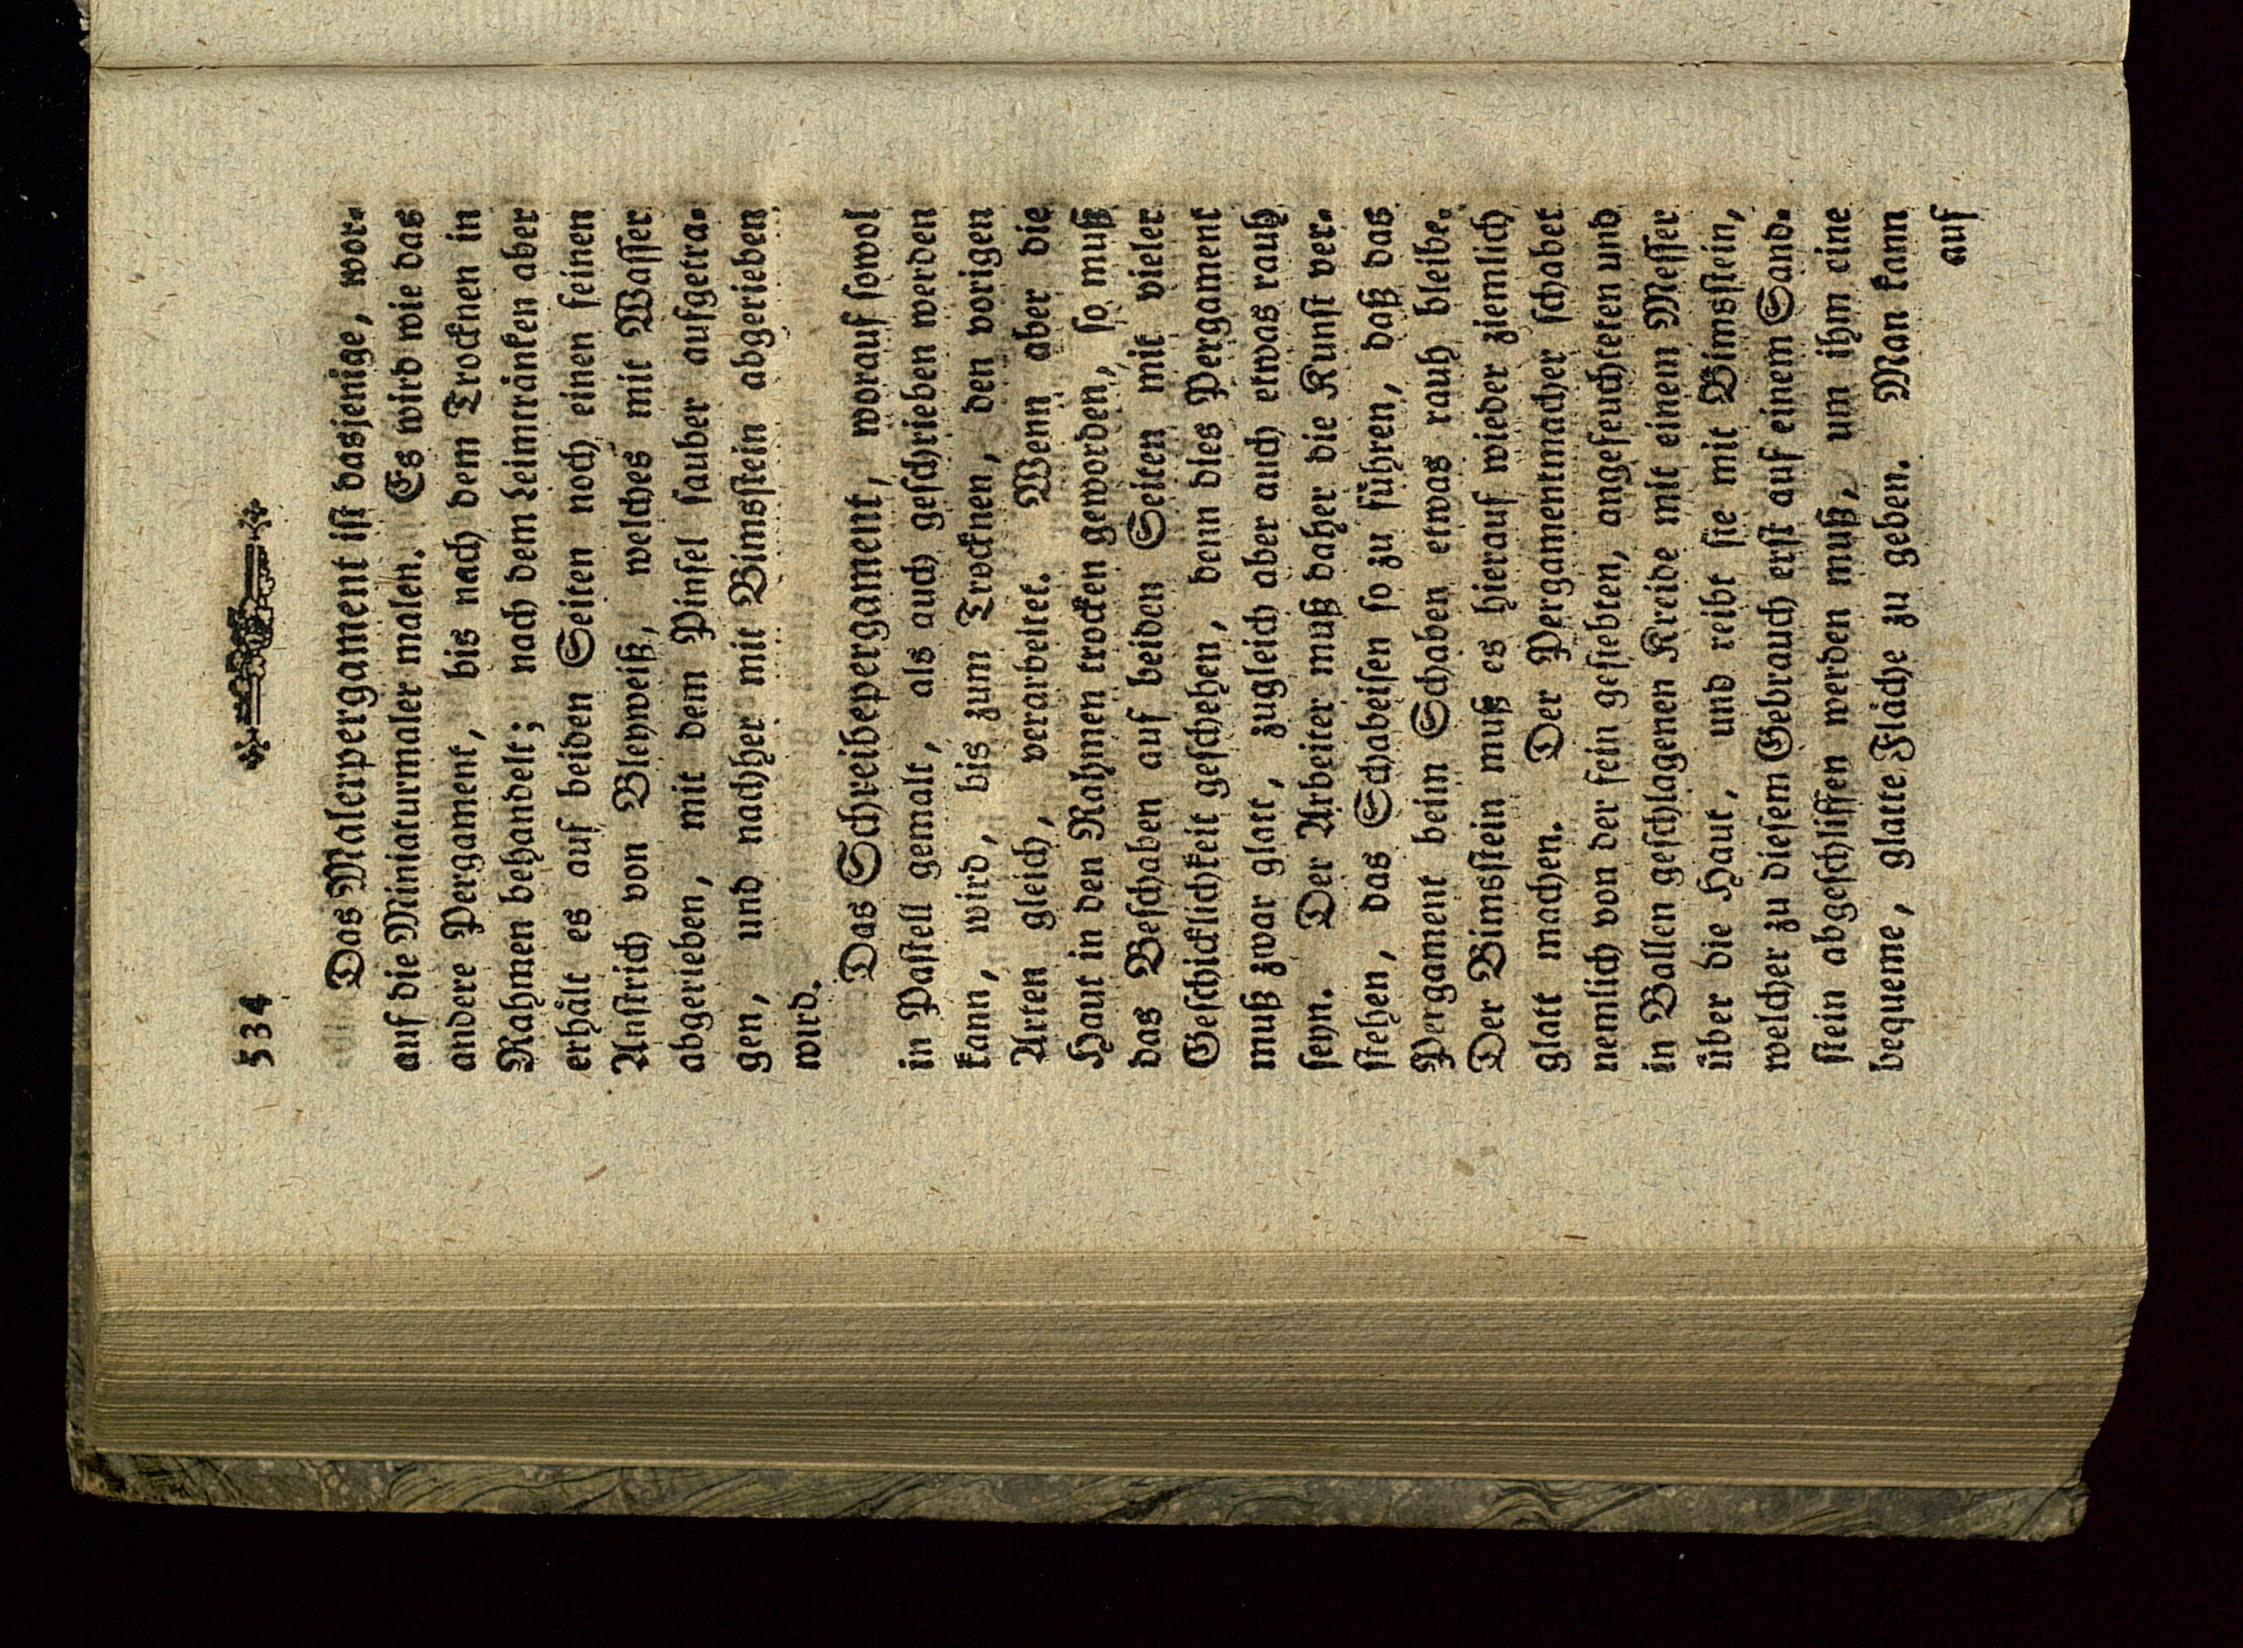 534
Das Malerpergament ist dasjenige, wor-
auf die Miniaturmaler malen. Es wird wie das
andere Pergament, bis nach dem Trocknen in
Rahmen behandelt; nach dem Leimtränken aber
erhält es auf beiden Seiten noch einen feinen
Anstrich von Bleyweiß, welches mit Wasser
abgerieben, mit dem Pinsel sauber aufgetra-
gen, und nachher mit Bimsstein abgerieben
wird.
Das Schreibepergament, worauf sowol
in Pastell gemalt, als auch geschrieben werden
kann, wird, bis zum Trocknen, den vorigen
Arten gleich, verarbeitet. Wenn aber die
Haut in den Rahmen trocken geworden, so muß
das Beschaben auf beiden Seiten mit vieler
Geschicklichkeit geschehen, denn dies Pergament
muß zwar glatt, zugleich aber auch etwas rauh
seyn. Der Arbeiter muß daher die Kunst ver-
stehen, das Schabeisen so zu führen, daß das
Pergament beim Schaben etwas rauh bleibe.
Der Bimsstein muß es hierauf wieder ziemlich
glatt machen. Der Pergamentmacher schabet
nemlich von der fein gesiebten, angefeuchteten und
in Ballen geschlagenen Kreide mit einem Messer
über die Haut, und reibt sie mit Bimsstein,
welcher zu diesem Gebrauch erst auf einem Sand-
stein abgeschliffen werden muß, um ihm eine
bequeme, glatte Fläche zu geben. Man kann
auf